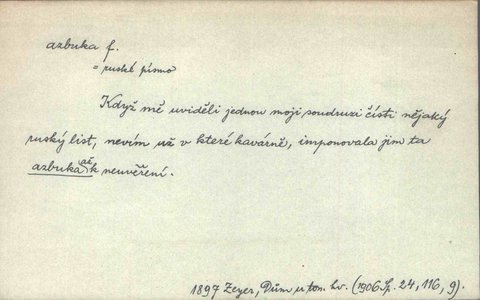 azbuka f.
= ruské písmo
Když mě uviděli jednou moji soudruzi čísti nějaký
ruský list, nevím už v které kavárně, imponovala jim ta
azbuka až k neuvěření.
1897 Zeyer, Dům u ton. hv. (1906 Sp. 24, 116, 9).